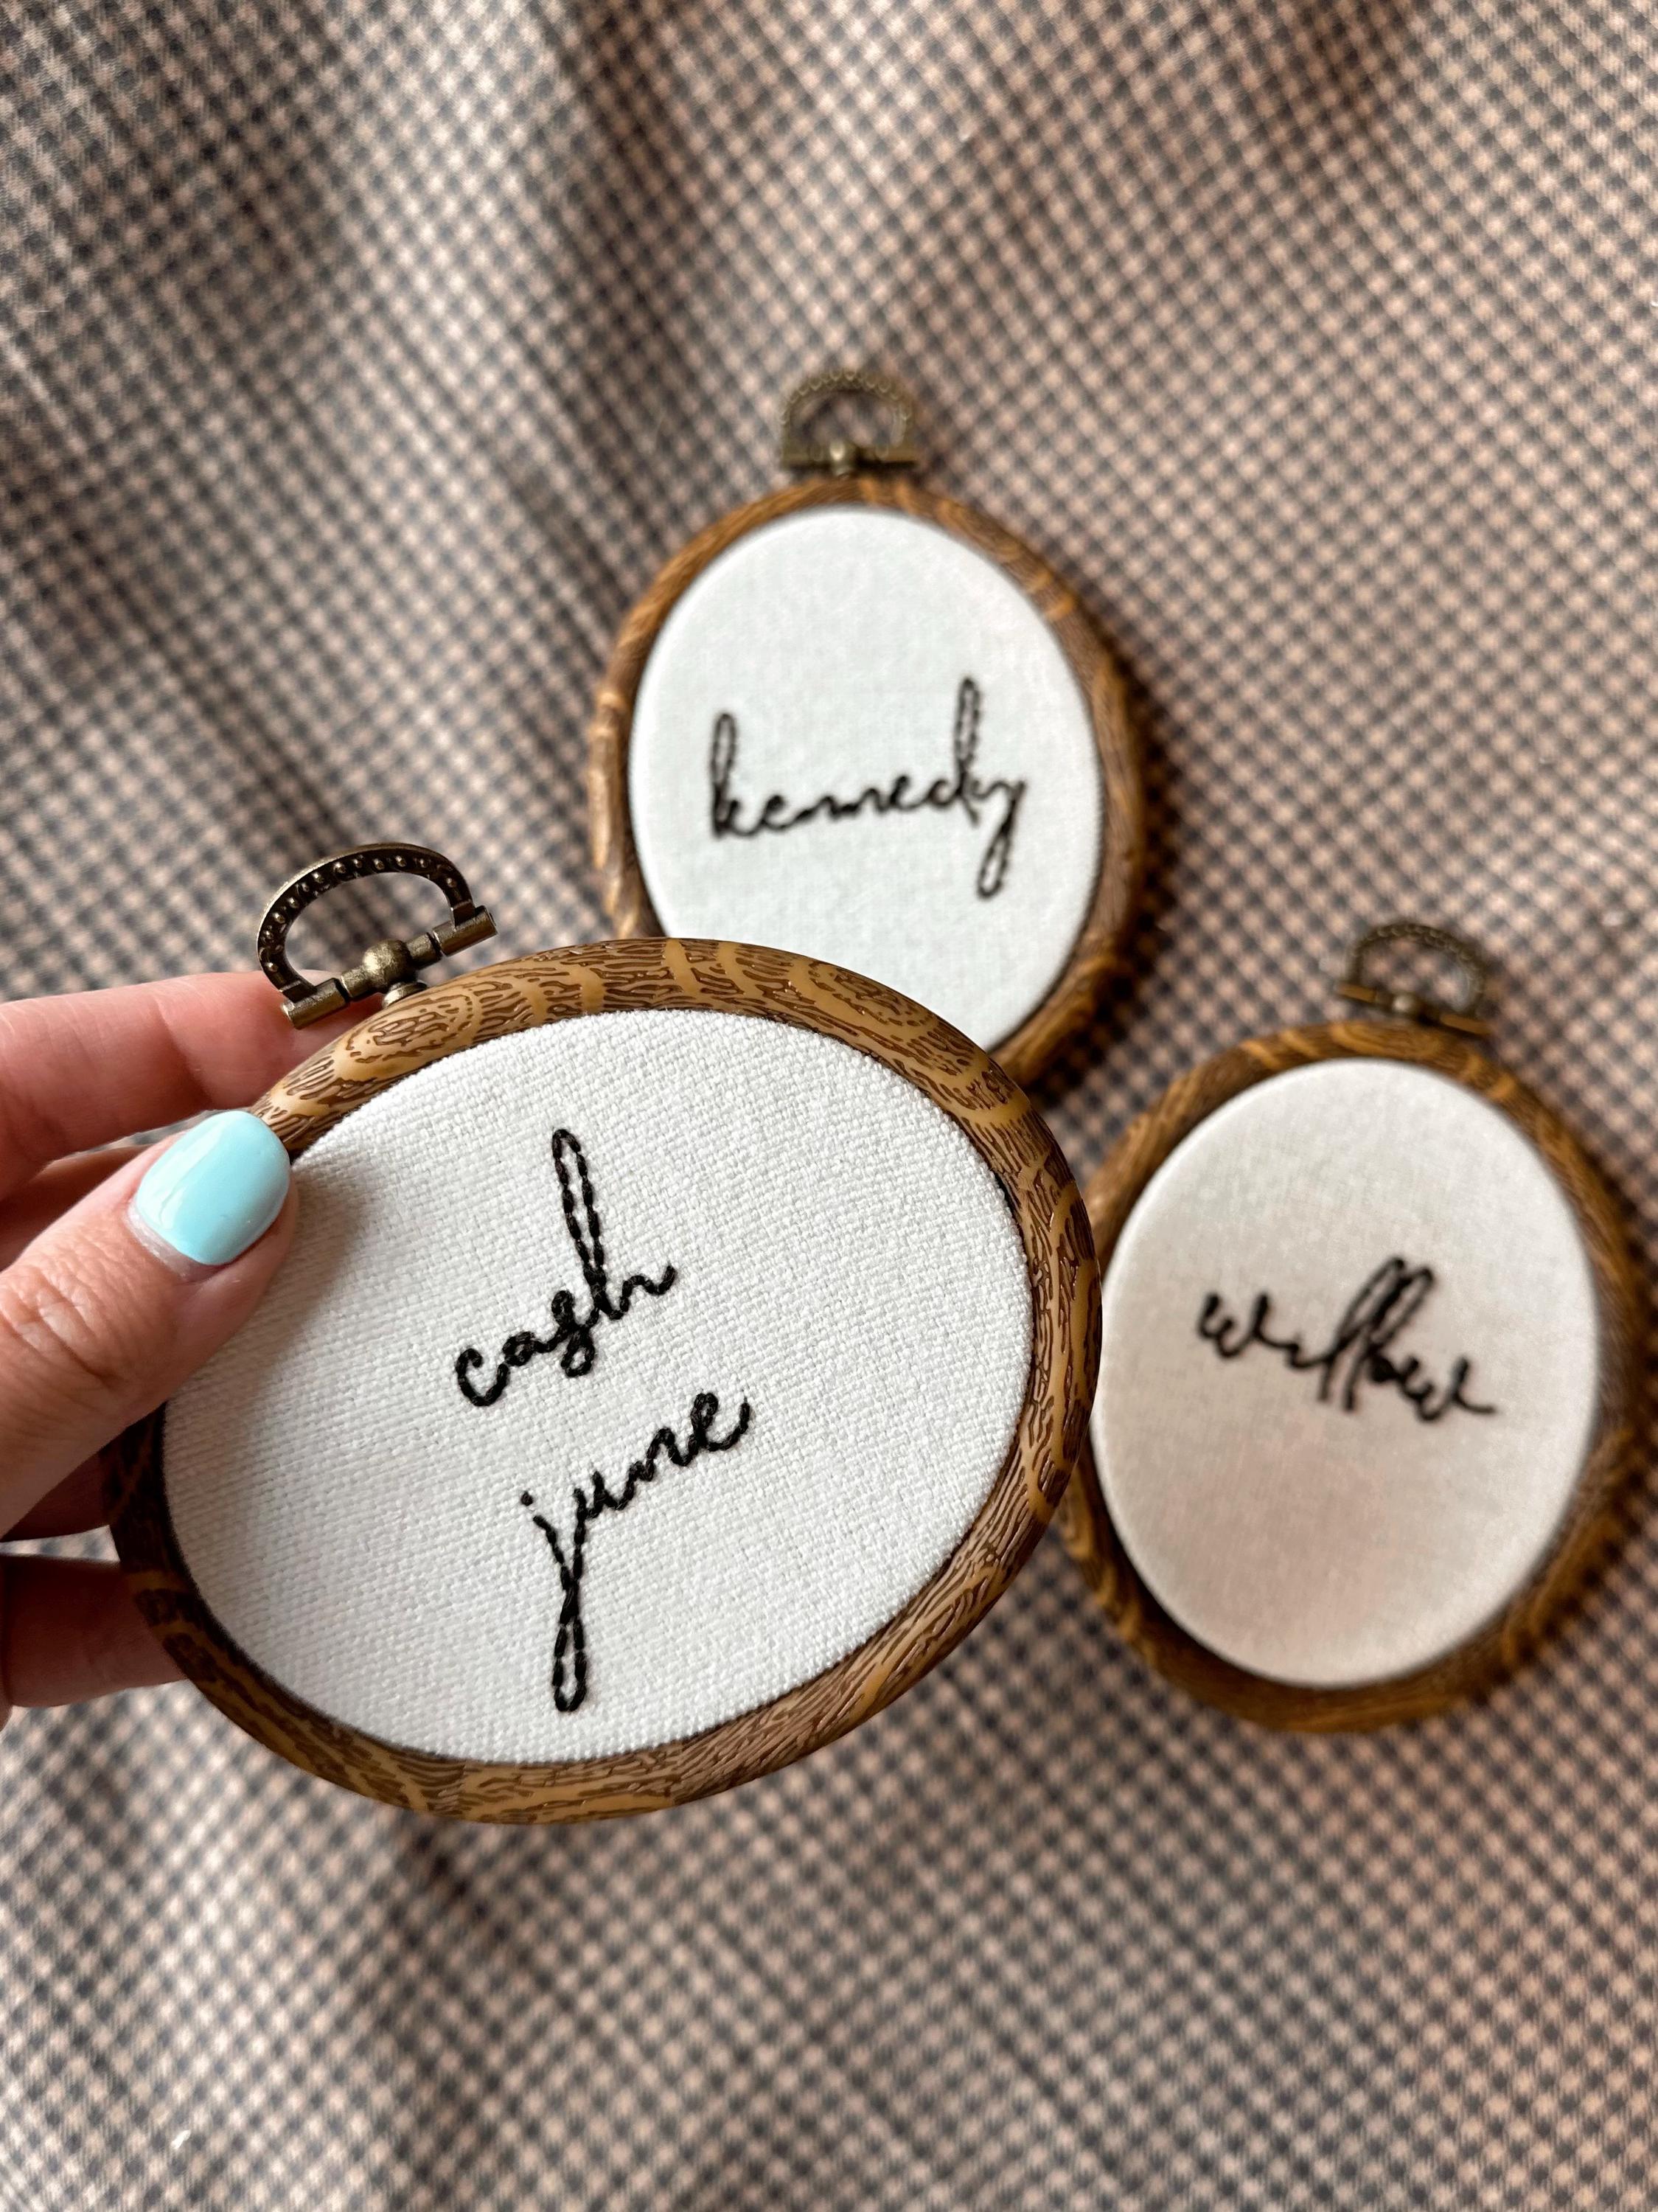 kennedy
cash
june
willow